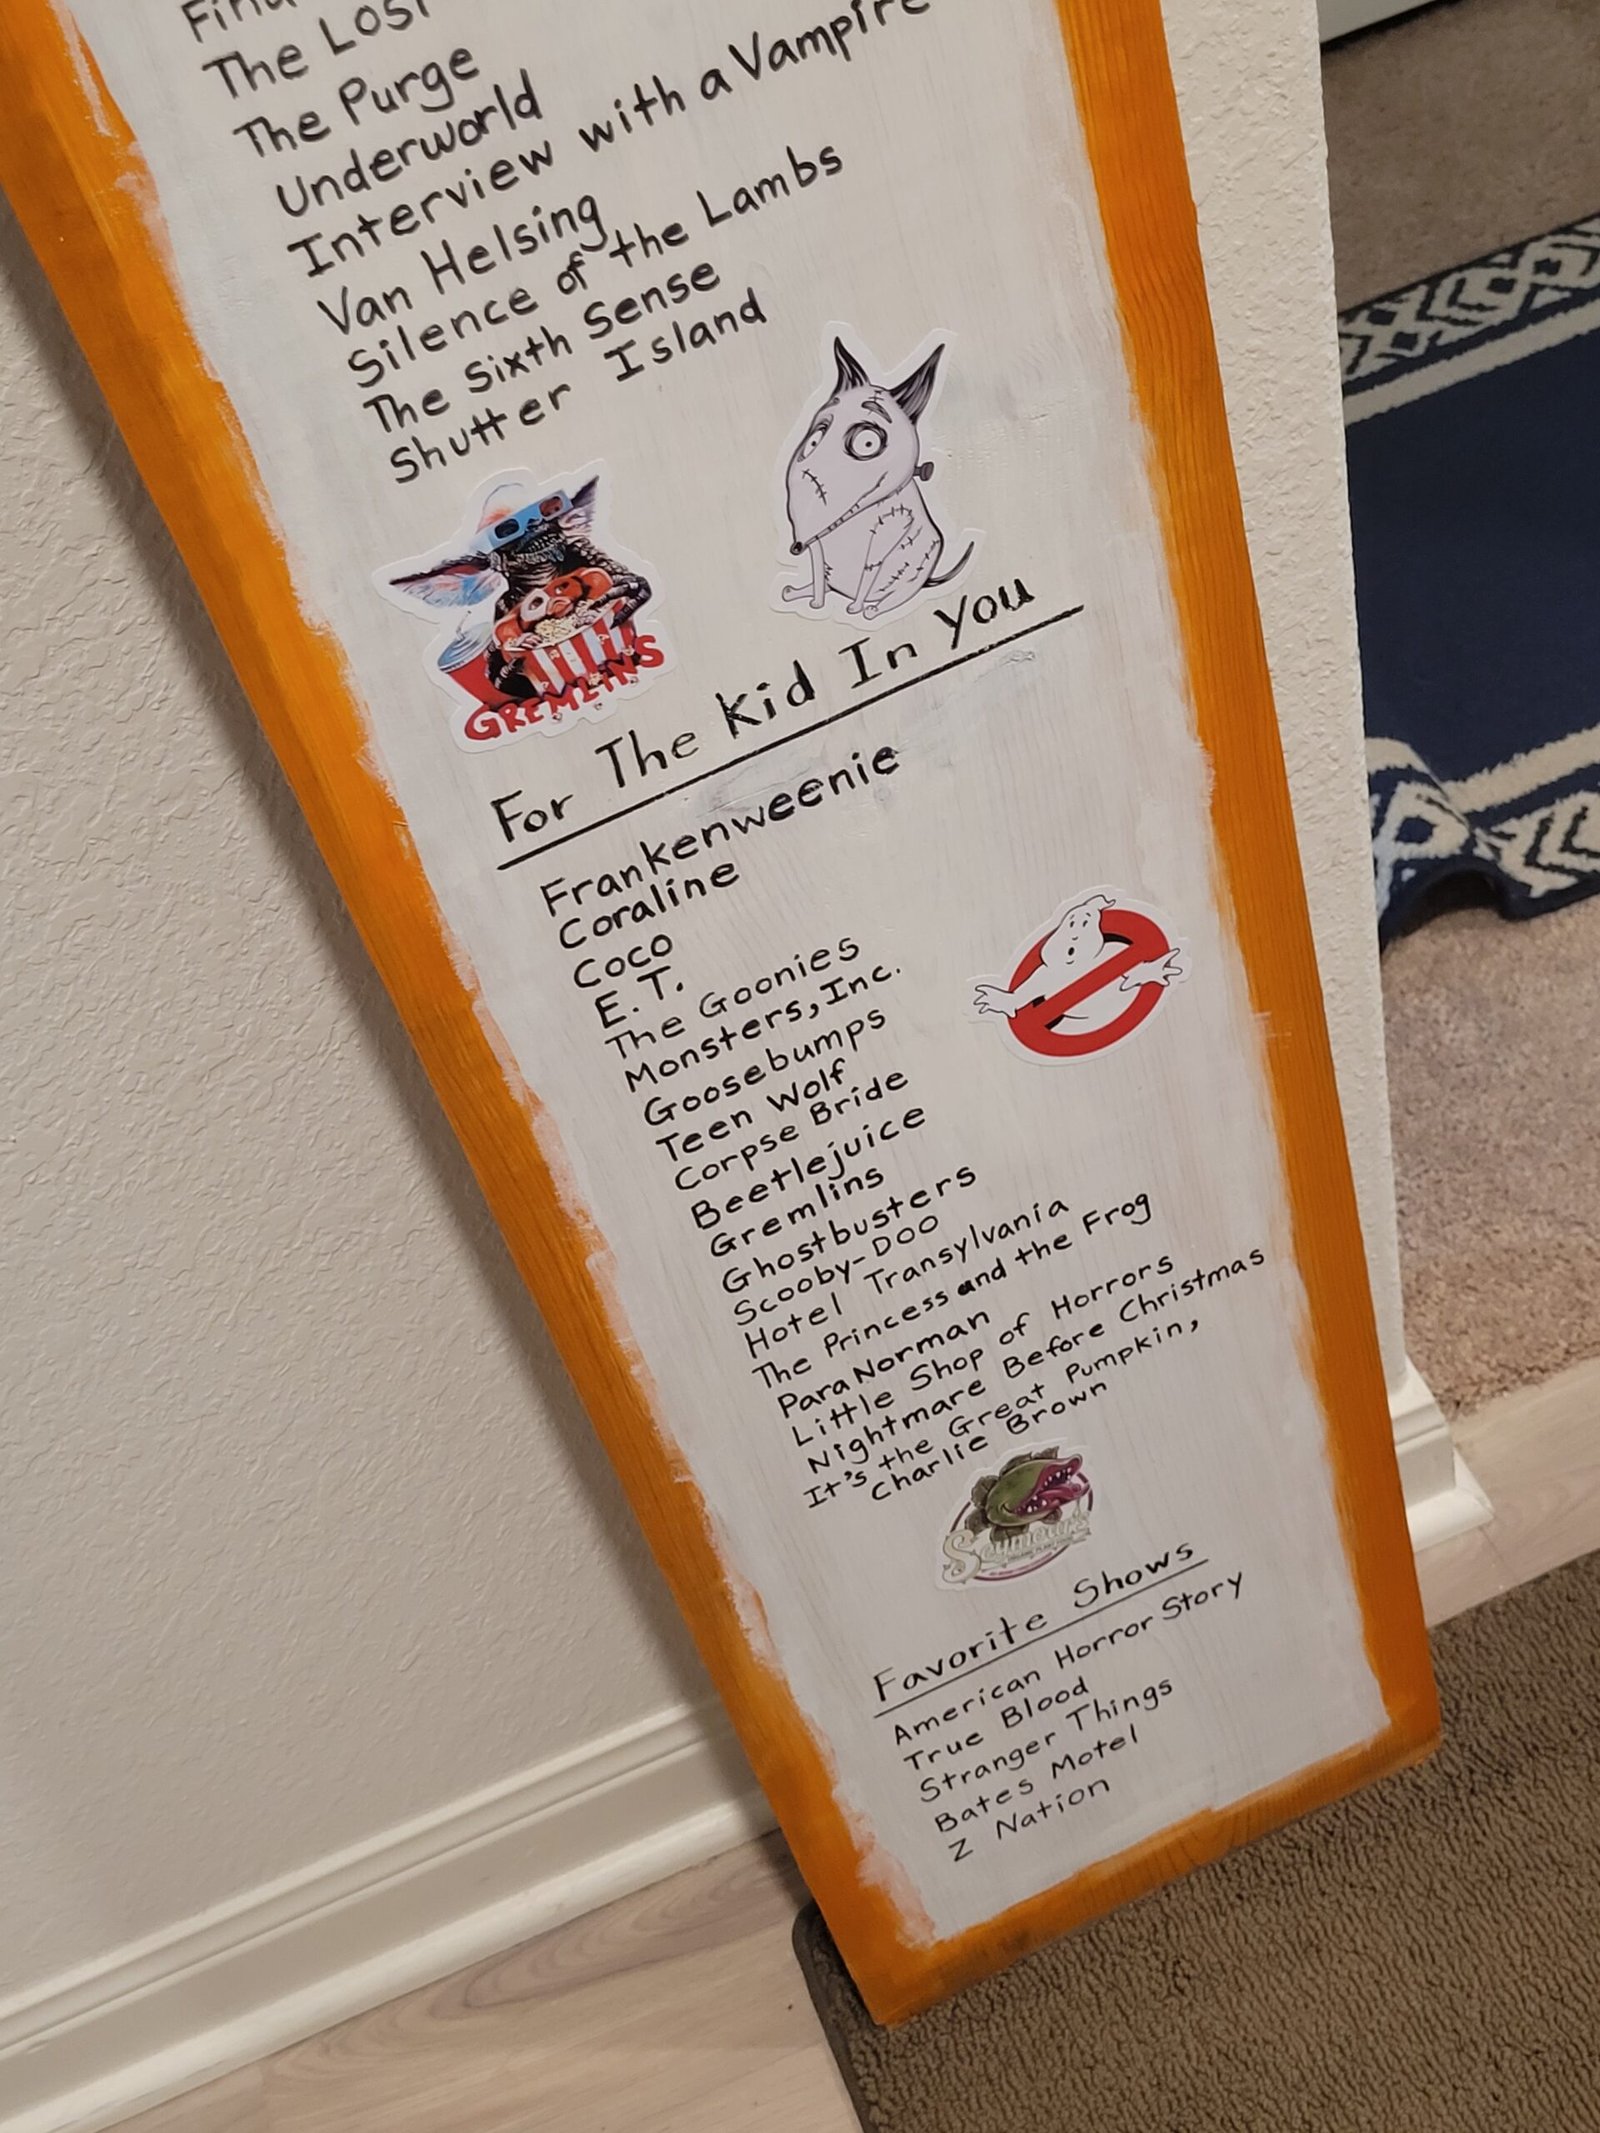 The
The Purge
Underworld
Interview with a Vampire
Van Helsing
Silence of the Lambs
The Sixth Sense
Shutter Island
GREMLINS
For The Kid In You
Frankenweenie
Coraline
Coco
E.T.
The Goonies
Monsters, Inc.
Goosebumps
Teen Wolf
Corpse Bride
Beetlejuice
Gremlins
Ghostbusters
Scooby-Doo
Hotel Transylvania
The Princess and the Frog
ParaNorman
Little Shop of Horrors
Nightmare Before Christmas
It's the Great Pumpkin,
Charlie Brown
Seymour's
Favorite Shows
American Horror Story
True Blood
Stranger Things
Bates Motel
Z Nation